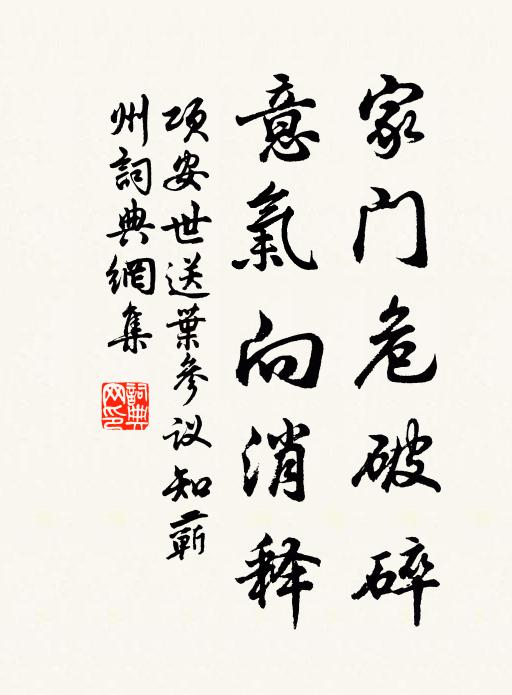 家门危破碎
意氣向消释
项安世送葉參议知蘄
州詞典網集
詞典
网印